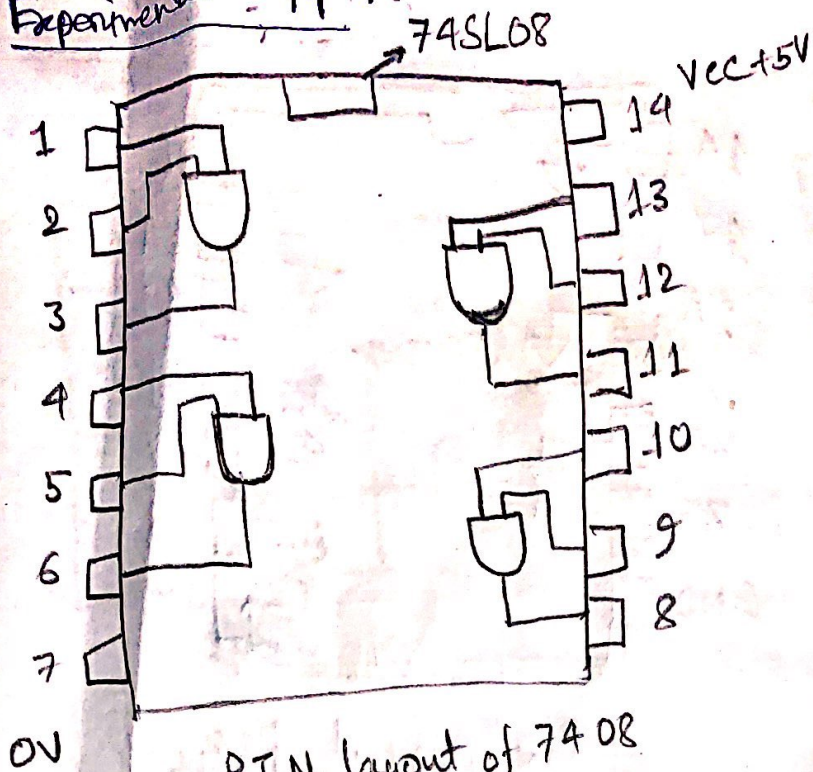 Experiment
74SL08
VCC+5V
1
2
3
4
5
6
7
0V
14
13
12
11
10
9
8
PIN layout of 7408